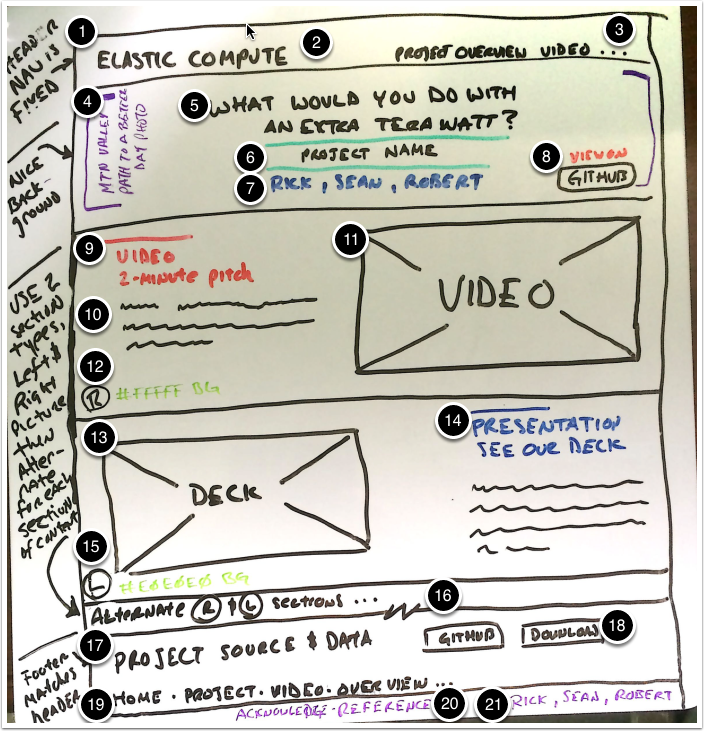 1
2
3
HEADER
NAV IS
FIXED
ELASTIC COMPUTE
PROJECT OVERVIEW VIDEO ...
4
MTN VALLEY
PATH TO A BETTER
DAY PHOTO
5
WHAT WOULD YOU DO WITH
AN EXTRA TERAWATT?
6
PROJECT NAME
7
RICK, SEAN, ROBERT
8
VIEW ON
GITHUB
NICE
BACK-
GROUND
9
VIDEO
2-MINUTE PITCH
10
11
VIDEO
12
R
#FFFFF BG
USE 2
SECTION
TYPES,
LEFT &
RIGHT
PICTURE
THEN
ALTER-
NATE
FOR EACH
SECTION
OF CONTENT
13
DECK
14
PRESENTATION
SEE OUR DECK
15
L
#E0E0E0 BG
ALTERNATE R & L SECTIONS ...
16
17
PROJECT SOURCE & DATA
GITHUB
DOWNLOAD
18
FOOTER
MATCHES
HEADER
19
HOME · PROJECT · VIDEO · OVERVIEW ...
ACKNOWLEDGE · REFERENCE
20
21
RICK, SEAN, ROBERT